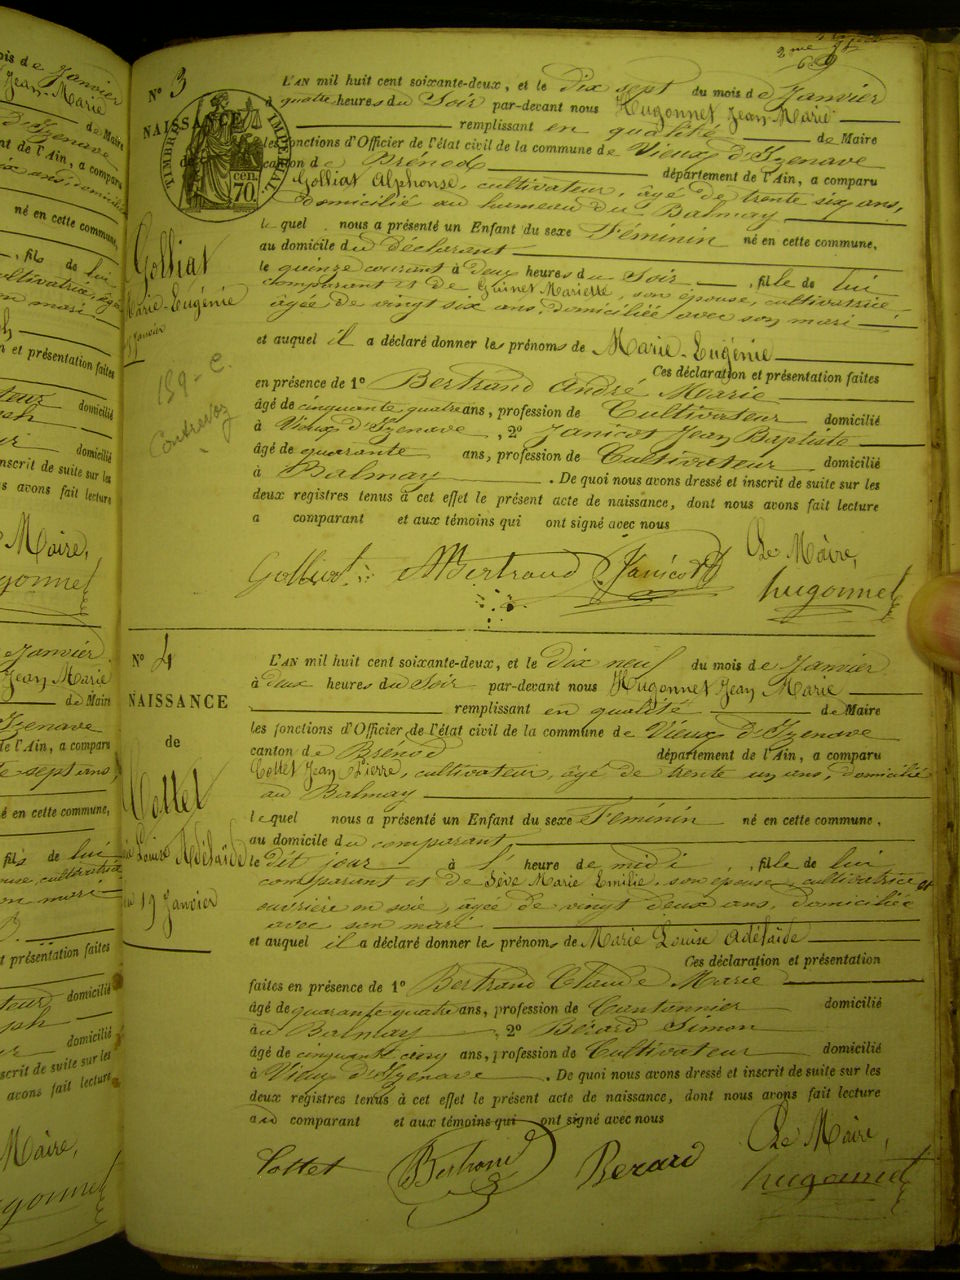 N° 3
NAISSANCE
de
TIMBRE IMPÉRIAL
70. cen.
Golliat
Marie-Eugénie
15 Janvier
159 - C.
L'AN mil huit cent soixante-deux, et le dix sept du mois de Janvier
à quatre heures du Soir par-devant nous Hugonnet Jean Marie
remplissant en qualité de Maire
les fonctions d'Officier de l'état civil de la commune de Vieux d'Izenave
canton de Brénod département de l'Ain, a comparu
Golliat Alphonse, cultivateur, âgé de trente six ans,
domicilié au hameau du Balmay
lequel nous a présenté un Enfant du sexe Féminin né en cette commune,
au domicile du déclarant
le quinze courant à deux heures du Soir, fille de lui
comparant et de Guinet Mariette, son épouse, cultivatrice,
âgée de vingt six ans, domiciliée avec son mari
et auquel il a déclaré donner les prénoms de Marie-Eugénie
Ces déclaration et présentation faites
en présence de 1° Bertrand André Marie
âgé de cinquante quatre ans, profession de Cultivateur domicilié
à Vieux d'Izenave, 2° Janicot Jean Baptiste
âgé de quarante ans, profession de Cultivateur domicilié
à Balmay. De quoi nous avons dressé et inscrit de suite sur les
deux registres tenus à cet effet le présent acte de naissance, dont nous avons fait lecture
a comparant et aux témoins qui ont signé avec nous
Le Maire,
Golliat ABertrand Janicot hugonnet
N° 4
NAISSANCE
de
Cottet
Marie Louise Adélaïde
19 Janvier
L'AN mil huit cent soixante-deux, et le dix neuf du mois de Janvier
à deux heures du Soir par-devant nous Hugonnet Jean Marie
remplissant en qualité de Maire
les fonctions d'Officier de l'état civil de la commune de Vieux d'Izenave
canton de Brénod département de l'Ain, a comparu
Cottet Jean Pierre, cultivateur, âgé de trente un ans, domicilié
au Balmay
lequel nous a présenté un Enfant du sexe Féminin né en cette commune,
au domicile du comparant
le dit jour à l' heure de midi, fille de lui
comparant et de Sève Marie Emilie, son épouse, cultivatrice et
ouvrière en soie, âgée de vingt deux ans, domiciliée
avec son mari
et auquel il a déclaré donner les prénoms de Marie Louise Adélaïde
Ces déclaration et présentation
faites en présence de 1° Bertrand Claude Marie
âgé de quarante quatre ans, profession de Cantonnier domicilié
au Balmay, 2° Bérard Simon
âgé de cinquante cinq ans, profession de Cultivateur domicilié
à Vieux d'Izenave. De quoi nous avons dressé et inscrit de suite sur les
deux registres tenus à cet effet le présent acte de naissance, dont nous avons fait lecture
au comparant et aux témoins qui ont signé avec nous
Le Maire,
Cottet Bertrand Berard hugonnet